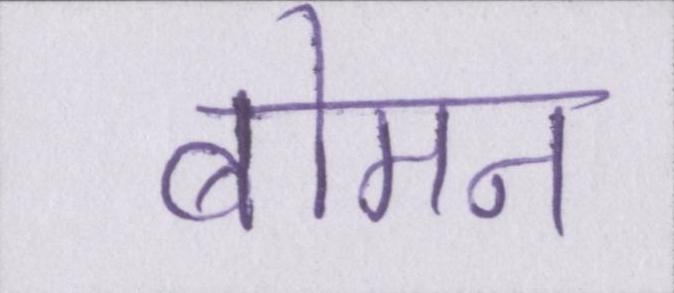 बोमन